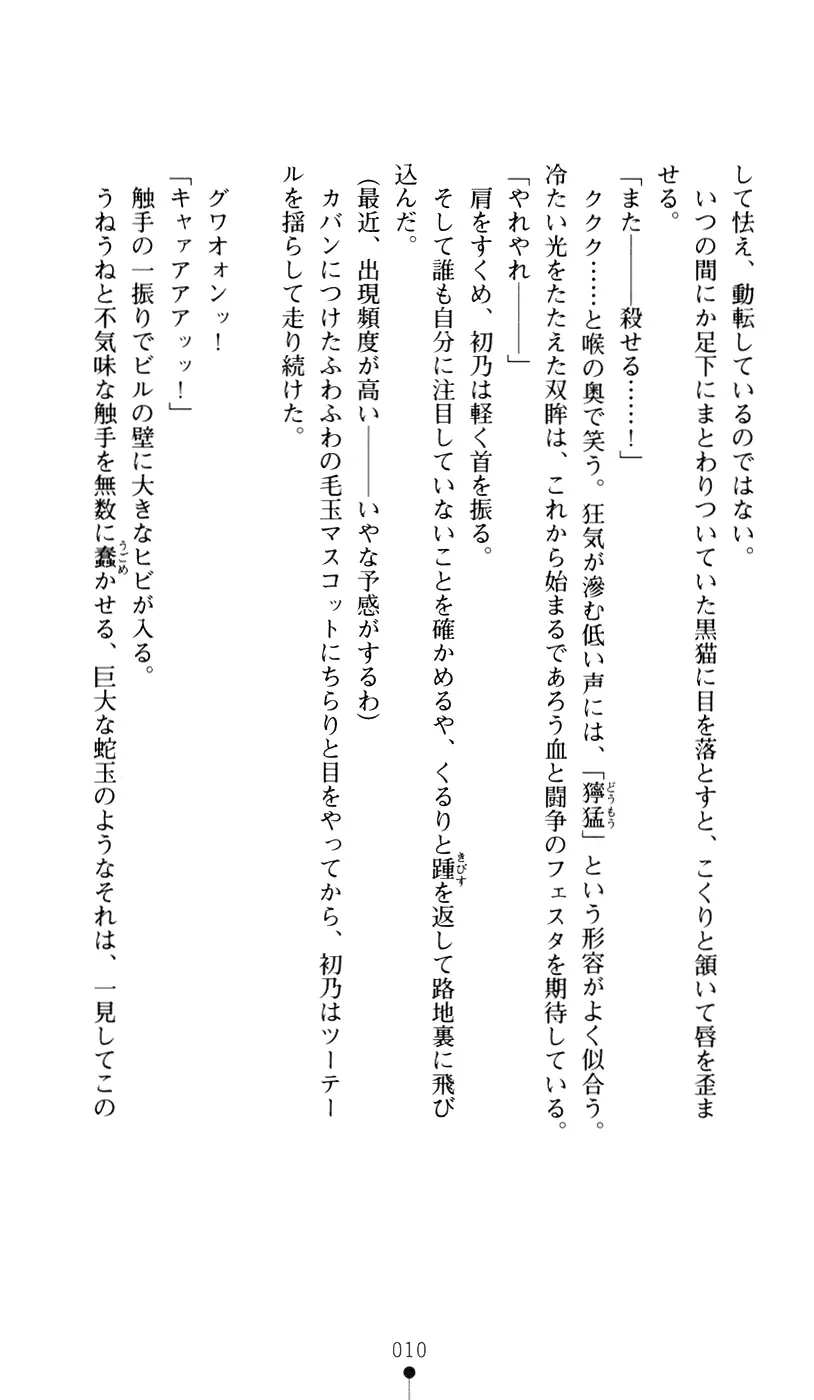 して怯え、動転しているのではない。
いつの間にか足下にまとわりついていた黒猫に目を落とすと、こくりと頷いて唇を歪ま
せる。
「また――殺せる……！」
ククク……と喉の奥で笑う。狂気が滲む低い声には、「獰猛」という形容がよく似合う。
どうもう
冷たい光をたたえた双眸は、これから始まるであろう血と闘争のフェスタを期待している。
「やれやれ――」
肩をすくめ、初乃は軽く首を振る。
そして誰も自分に注目していないことを確かめるや、くるりと踵を返して路地裏に飛び
きびす
込んだ。
（最近、出現頻度が高い――いやな予感がするわ）
カバンにつけたふわふわの毛玉マスコットにちらりと目をやってから、初乃はツーテー
ルを揺らして走り続けた。
グワオォンッ！
「キャァアアアッッ！」
触手の一振りでビルの壁に大きなヒビが入る。
うねうねと不気味な触手を無数に蠢かせる、巨大な蛇玉のようなそれは、一見してこの
うごめ
010